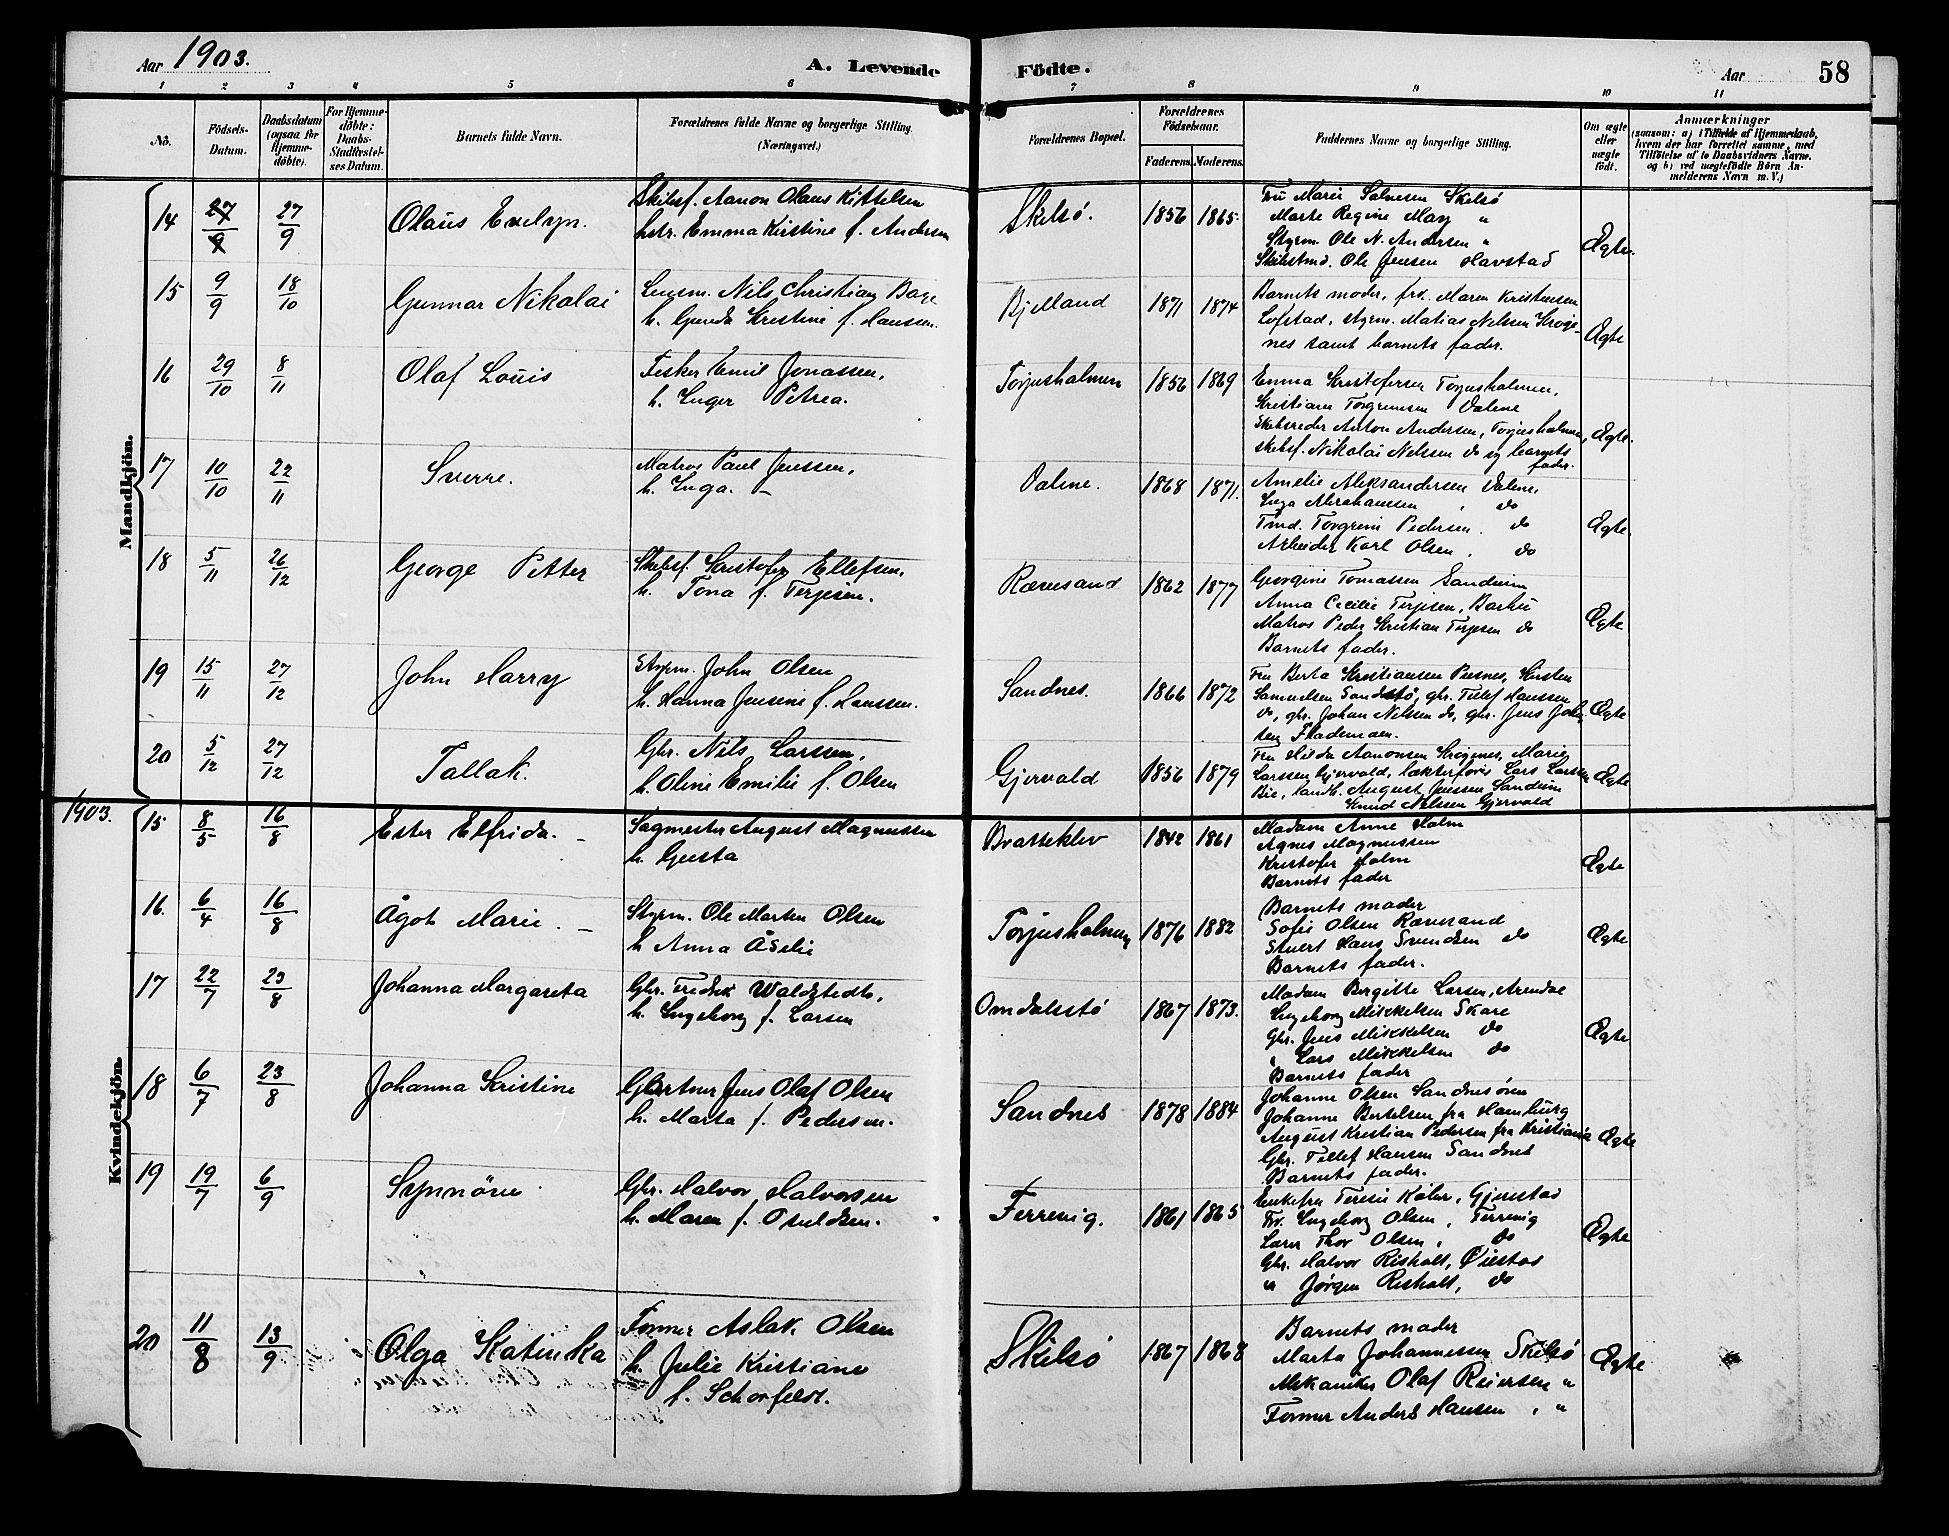 Aar 1903.
A. Levende Födte.
Aar
58
1 2 3 4 5 6 7 8 9 10 11
No.
Födsels-Datum.
Daabsdatum (ogsaa for Hjemme-döbte).
For Hjemme-döbte: Daabs-Stadfæstel-ses Datum.
Barnets fulde Navn.
Forældrenes fulde Navne og borgerlige Stilling. (Næringsvei.)
Forældrenes Bopæl.
Forældrenes Födselsaar.
Faderens. Moderens.
Faddernes Navne og borgerlige Stilling.
Om ægte eller uægte födt.
Anmærkninger
(saasom: a) i Tilfælde af Hjemmedaab, hvem der har forrettet samme, med Tilföielse af to Daabsvidners Navne. og b) ved uægtefödte Börn An-melderens Navn m. V.)
Mandkjön.
14 27/9 27/9 Olaus Evelyn.
Skibsf. Aanon Olaus Kittelsen
hstr. Emma Kirstine f. Andersen
Skilsö. 1856 1865.
Fru Marie Salvesen Skilsö
Marte Regine May "
Styrm. Ole N. Andersen "
Skibstmd. Ole Jensen Havstad
Ægte.
15 9/9 18/10 Gunnar Nikolai
Lensm. Nils Christian Boge
h. Gunda Kristine f. Hansen.
Bjelland 1871 1874
Barnets moder, frk. Maren Kristensen
Lofstad, styrm. Matias Nelsen Kroge-
nes samt barnets fader.
Ægte
16 29/10 8/11 Olaf Louis
Fisker Emil Jonassen,
h. Inger Petrea.
Torjusholmen 1856 1869
Emma Kristofersen Torjusholmen,
Kristiane Torgrimsen Valene
Skibsreder Anton Andersen, Torjusholmen,
skibsf. Nikolai Nelsen do og barnets
fader.
Ægte.
17 10/10 22/11 Sverre.
Matros Paul Jenssen,
h. Inga. –
Valene. 1868 1871.
Amelie Aleksandersen Valene,
Inga Abrahamsen , do
Tmd. Torgrim Pedersen. do
Arbeider Karl Olsen, do
Ægte.
18 5/11 26/12 George Petter
Skibsf. Kristofer Ellefsen,
h. Tona f. Terjesen.
Rævesand 1862 1877
Georgine Tomassen Sandum
Anna Cecilie Terjesen, Barbu
Matros Peder Kristian Terjesen do
Barnets fader.
Ægte
19 15/11 27/12 John Harry
Styrm. John Olsen
h. Hanna Jensine f. Hanssen.
Sandnes. 1866 1872
Fru Berta Kristiansen Revesnes, Kirsten
Samuelsen Sandstö, gbr. Tellef Hanssen
do, gbr. Johan Nelsen do, gbr. Jens Johan-
sen Flademoen.
Ægte
20 5/12 27/12 Tallak.
Gbr. Nils Larssen,
h. Oline Emilie f. Olsen
Gjervald 1856 1879
Fru Hilda Aanonsen Krogenes, Marie
Larssen Gjervald, Lars Larsen
Bie, August Jenssen Sandum
Knud Nelsen Gjervald
Ægte
1903.
Kvindekjön.
15 8/5 16/8 Ester Elfrida. –
Sagmester August Magnussen
h. Gusta
Bratteklev 1842 1861
Madam Anne Holm
Agnes Magnussen
Kristofer Holm
Barnets fader
Ægte
16. 6/4 16/8 Ågot Marie. –
Styrm. Ole Marten Olsen
h Anna Åselie
Torjusholmen 1876 1882
Barnets moder
Sofie Olsen Rævesand
Stuert Hans Svendsen do
Barnets fader.
Ægte
17 22/7 23/8 Johanna Margareta
Gbr. Fredrik Waldstedt,
h. Ingeborg f. Larsen
Omdalsstö 1867 1873.
Madam Bergitte Larsen, Arendal
Ingeborg Mikkelsen Skare
Gbr. Jens Mikkelsen do
" Lars Mikkelsen do
Barnets fader
Ægte
18 6/7 23/8 Johanna Kristine
Gartner Jens Olaf Olsen
h. Marta f. Pedersen.
Sandnes 1878 1884
Johanne Olsen Sandnesöen
Johanne Bertelsen fra Hamburg
August Kristian Pedersen fra Kristiania
Gbr. Tellef Hansen Sandnes
Barnets fader.
Ægte
19 19/7 6/9 Synnöve
Gbr. Halvor Halvorsen
h. Maren f. Osuldsen.
Ferrevig. 1861 1865
Enkefru Teresie Köhn, Gjerstad
Fr. Ingeborg Olsen, Ferrevig
Lærer Thor Olsen, do
Gbr. Halvor Risholt, Öiestad
" Jörgen Risholt, do
Ægte
20 11/8 13/9 Olga Katinka
Former Aslak Olsen
h. Julie Kristiane
f. Schorfeldt.
Skilsö 1867 1868
Barnets moder
Marta Johannessen Skilsö
Mekaniker Olaf Reiersen "
Former Anders Hansen, "
Ægte